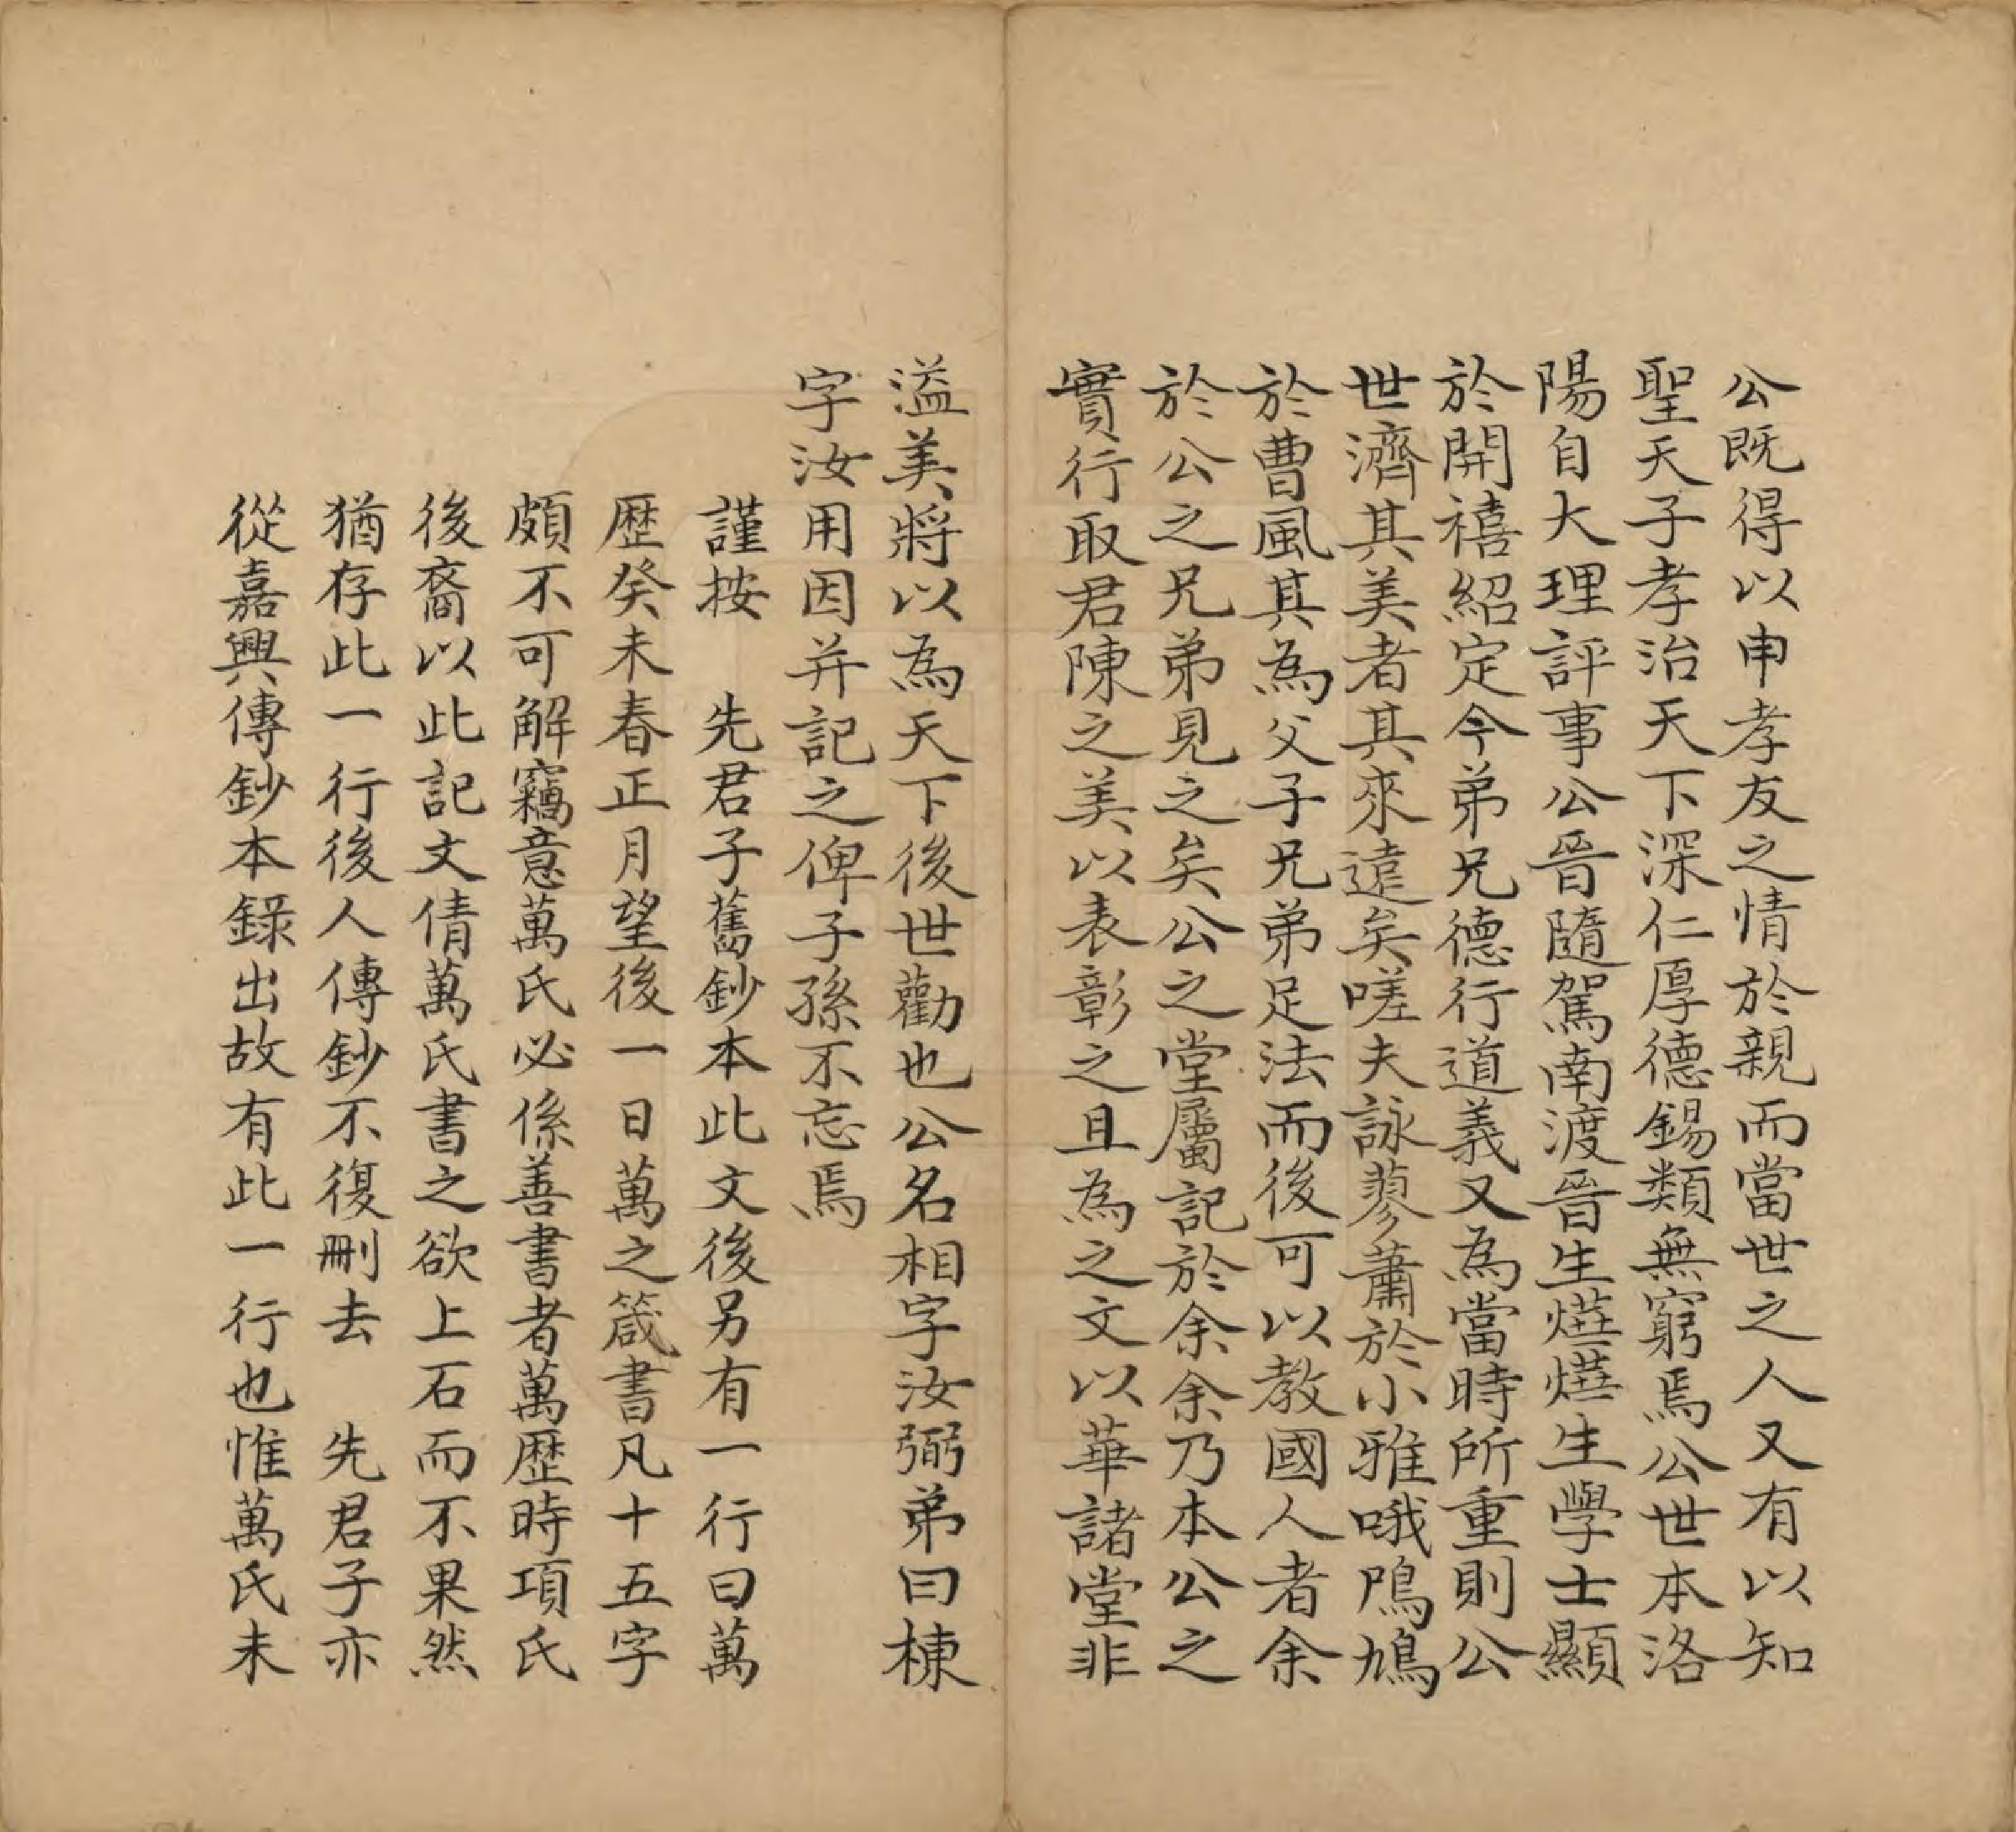 公既得以申孝友之情於親而當世之人又有以知
聖天子孝治天下深仁厚德錫類無窮焉公世本洛
陽自大理評事公晉隨駕南渡晉生㷸㷸生學士顯
於開禧紹定今弟兄德行道義又為當時所重則公
世濟其美者其來遠矣嗟夫詠蓼蕭於小雅哦鳲鳩
於曹風其為父子兄弟足法而後可以教國人者余
於公之兄弟見之矣公之堂屬記於余余乃本公之
實行取君陳之美以表彰之且為之文以華諸堂非
溢美將以為天下後世勸也公名相字汝弼弟曰棟
字汝用因并記之俾子孫不忘焉
謹按　先君子舊鈔本此文後另有一行曰萬
歷癸未春正月望後一日萬之箴書凡十五字
頗不可解竊意萬氏必係善書者萬歷時項氏
後裔以此記文倩萬氏書之欲上石而不果然
猶存此一行後人傳鈔不復刪去　先君子亦
從嘉興傳鈔本錄出故有此一行也惟萬氏未